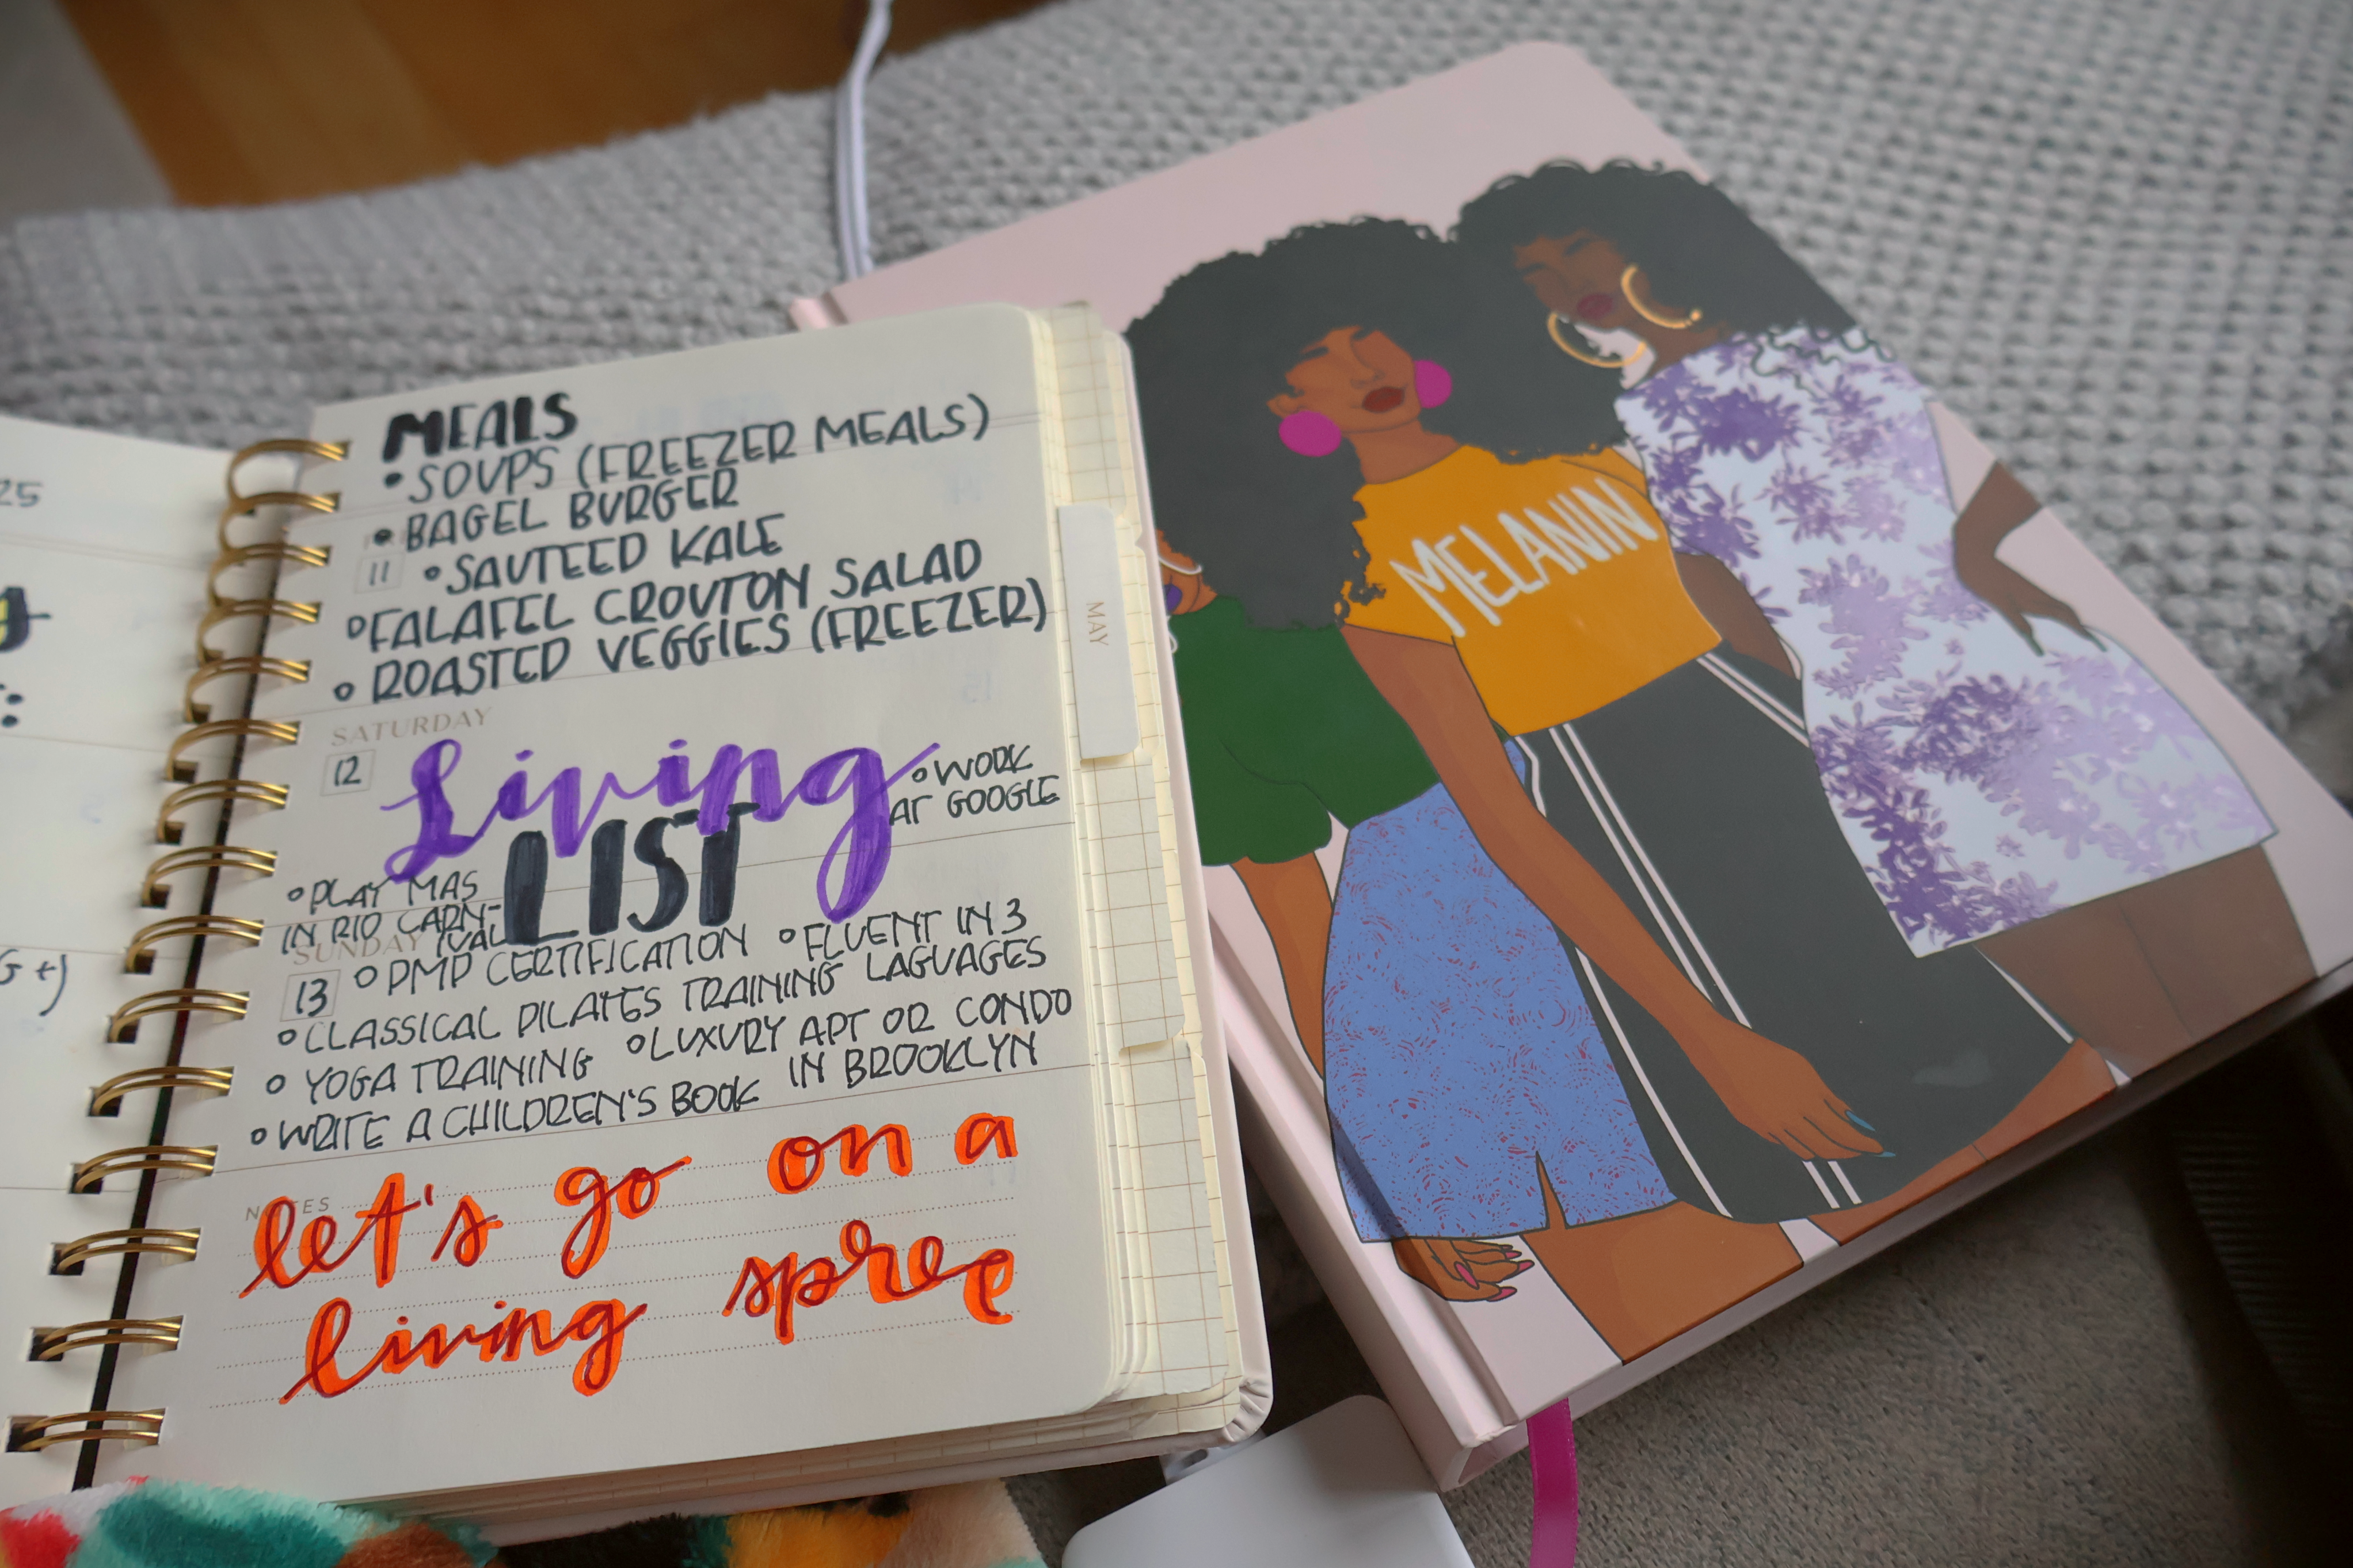 25
MEALS
• SOUPS (FREEZER MEALS)
• BAGEL BURGER
11 • SAUTEED KALE
• FALAFEL CROUTON SALAD
• ROASTED VEGGIES (FREEZER)
SATURDAY
12
Living
LIST
• WORK
AT GOOGLE
• PLAY MAS
IN RIO CARN-
IVAL
SUNDAY
13
• PMP CERTIFICATION
• FLUENT IN 3
LAGUAGES
• CLASSICAL PILATES TRAINING
• YOGA TRAINING
• LUXURY APT OR CONDO
IN BROOKLYN
• WRITE A CHILDREN'S BOOK
NOTES
let's go on a
living spree
MAY
MELANIN